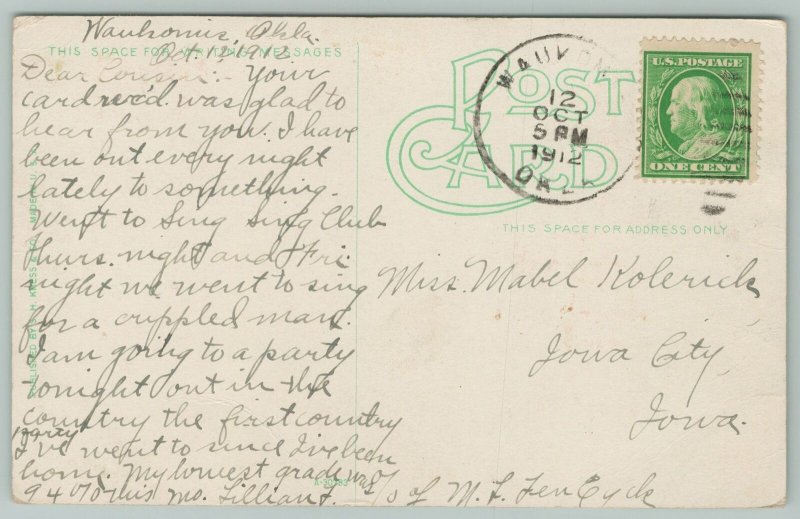 Waukomis, Okla.
THIS SPACE FOR WRITING MESSAGES
Oct. 12, 1912.
Dear Cousin:- Your
card rec'd. was glad to
hear from you. I have
been out every night
lately to something.
Went to Sing Sing Club
Thurs. night and Fri.
night we went to sing
for a crippled man.
I am going to a party
tonight out in the
country the first country
party
I've went to since I've been
home. My lowest grade was
94 % this mo. Lillian F.
PUBLISHED BY S. H. KRESS & CO. MADE IN U.
A-30383
POST
CARD
WAUKOM
12
OCT
5 PM
1912
OKL
U.S. POSTAGE
ONE CENT
THIS SPACE FOR ADDRESS ONLY
Miss. Mabel Kolerick
Iowa City,
Iowa.
c/o of M. F. TenEyck